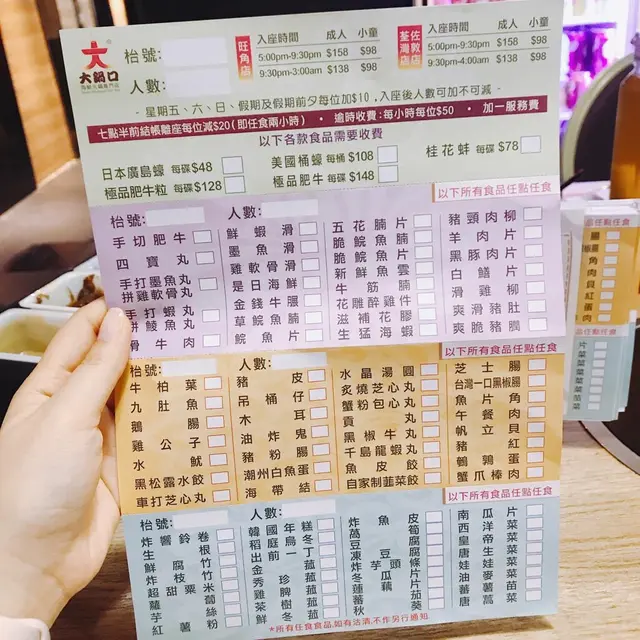 大鍋口
枱號:
人數:
旺角店
入座時間 成人 小童
5:00pm-9:30pm $158 $98
9:30pm-3:00am $138 $98
佐敦店
荃灣店
入座時間 成人 小童
5:00pm-9:30pm $158 $98
9:30pm-4:00am $138 $98
- 星期五、六、日、假期及假期前夕每位加$10，入座後人數可加不可減 -
七點半前結帳離座每位減$20(即任食兩小時) · 逾時收費：每小時每位$50 · 加一服務費
以下各款食品需要收費
日本廣島蠔 每碟$48
極品肥牛粒 每碟$128
美國桶蠔 每桶$108
極品肥牛 每碟$148
桂花蚌 每碟$78
以下所有食品任點任食
枱號: 人數:
手切肥牛
四寶丸
手打墨魚丸
拼雞軟骨丸
手打蝦丸
拼鯪魚丸
骨牛肉
鮮蝦滑
墨魚滑
雞軟骨滑
是日海鮮
金錢牛𦟌
草鯇魚腩
鯇魚片
五花腩片
脆鯇魚腩
脆鯇魚片
新鮮魚雲
牛筋腩
花雕醉雞件
滋補花膠
生猛海蝦
豬頸肉柳
羊肉片
黑豚肉片
白鱔片
滑雞柳
爽滑豬肚
爽脆豬膶
以下所有食品任點任食
枱號: 人數:
牛柏葉
九肚魚
鵝腸
雞公子
水魷
黑松露水餃
車打芝心丸
豬皮
吊桶仔
木耳
油炸鬼
豬粉腸
潮州白魚蛋
海帶結
水晶湯圓
炙燒芝心丸
蟹粉包心丸
貢丸
黑椒牛丸
千島龍蝦丸
魚皮餃
自家制韮菜餃
芝士腸
台灣一口黑椒腸
魚片角
午餐肉
帆立貝
豬紅
鵪鶉蛋
蟹爪棒肉
以下所有食品任點任食
枱號: 人數:
炸響鈴卷
生根
鮮腐竹
炸枝竹
超甜粟米
蘿蔔
芋絲
紅薯粉
韓國年糕
稻庭烏冬
出前一丁
金菇
秀珍菇
雞脾菇
茶樹菇
鮮冬菇
炸魚皮
萵筍
豆腐
凍豆腐
炸芋頭條
冬瓜片
蓮藕片
蕃茄
秋葵
南瓜片
西洋菜
皇帝菜
唐生菜
娃娃菜
油麥菜
豌豆苗
唐蒿菜
*所有任食食品,如有沽清,不作另行通知